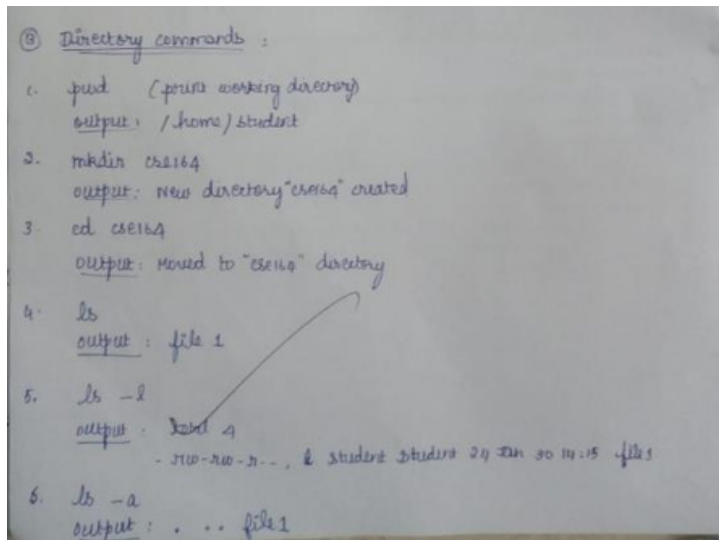 ③ Directory commands :
1. pwd (print working directory)
output: /home/student
2. mkdir cse164
output: New directory "cse164" created
3. cd cse164
output: Moved to "cse164" directory
4. ls
output : file 1
5. ls -l
output : total 4
- rw-rw-r--, 1 student student 24 Jan 30 14:15 file1
6. ls -a
output : . .. file1